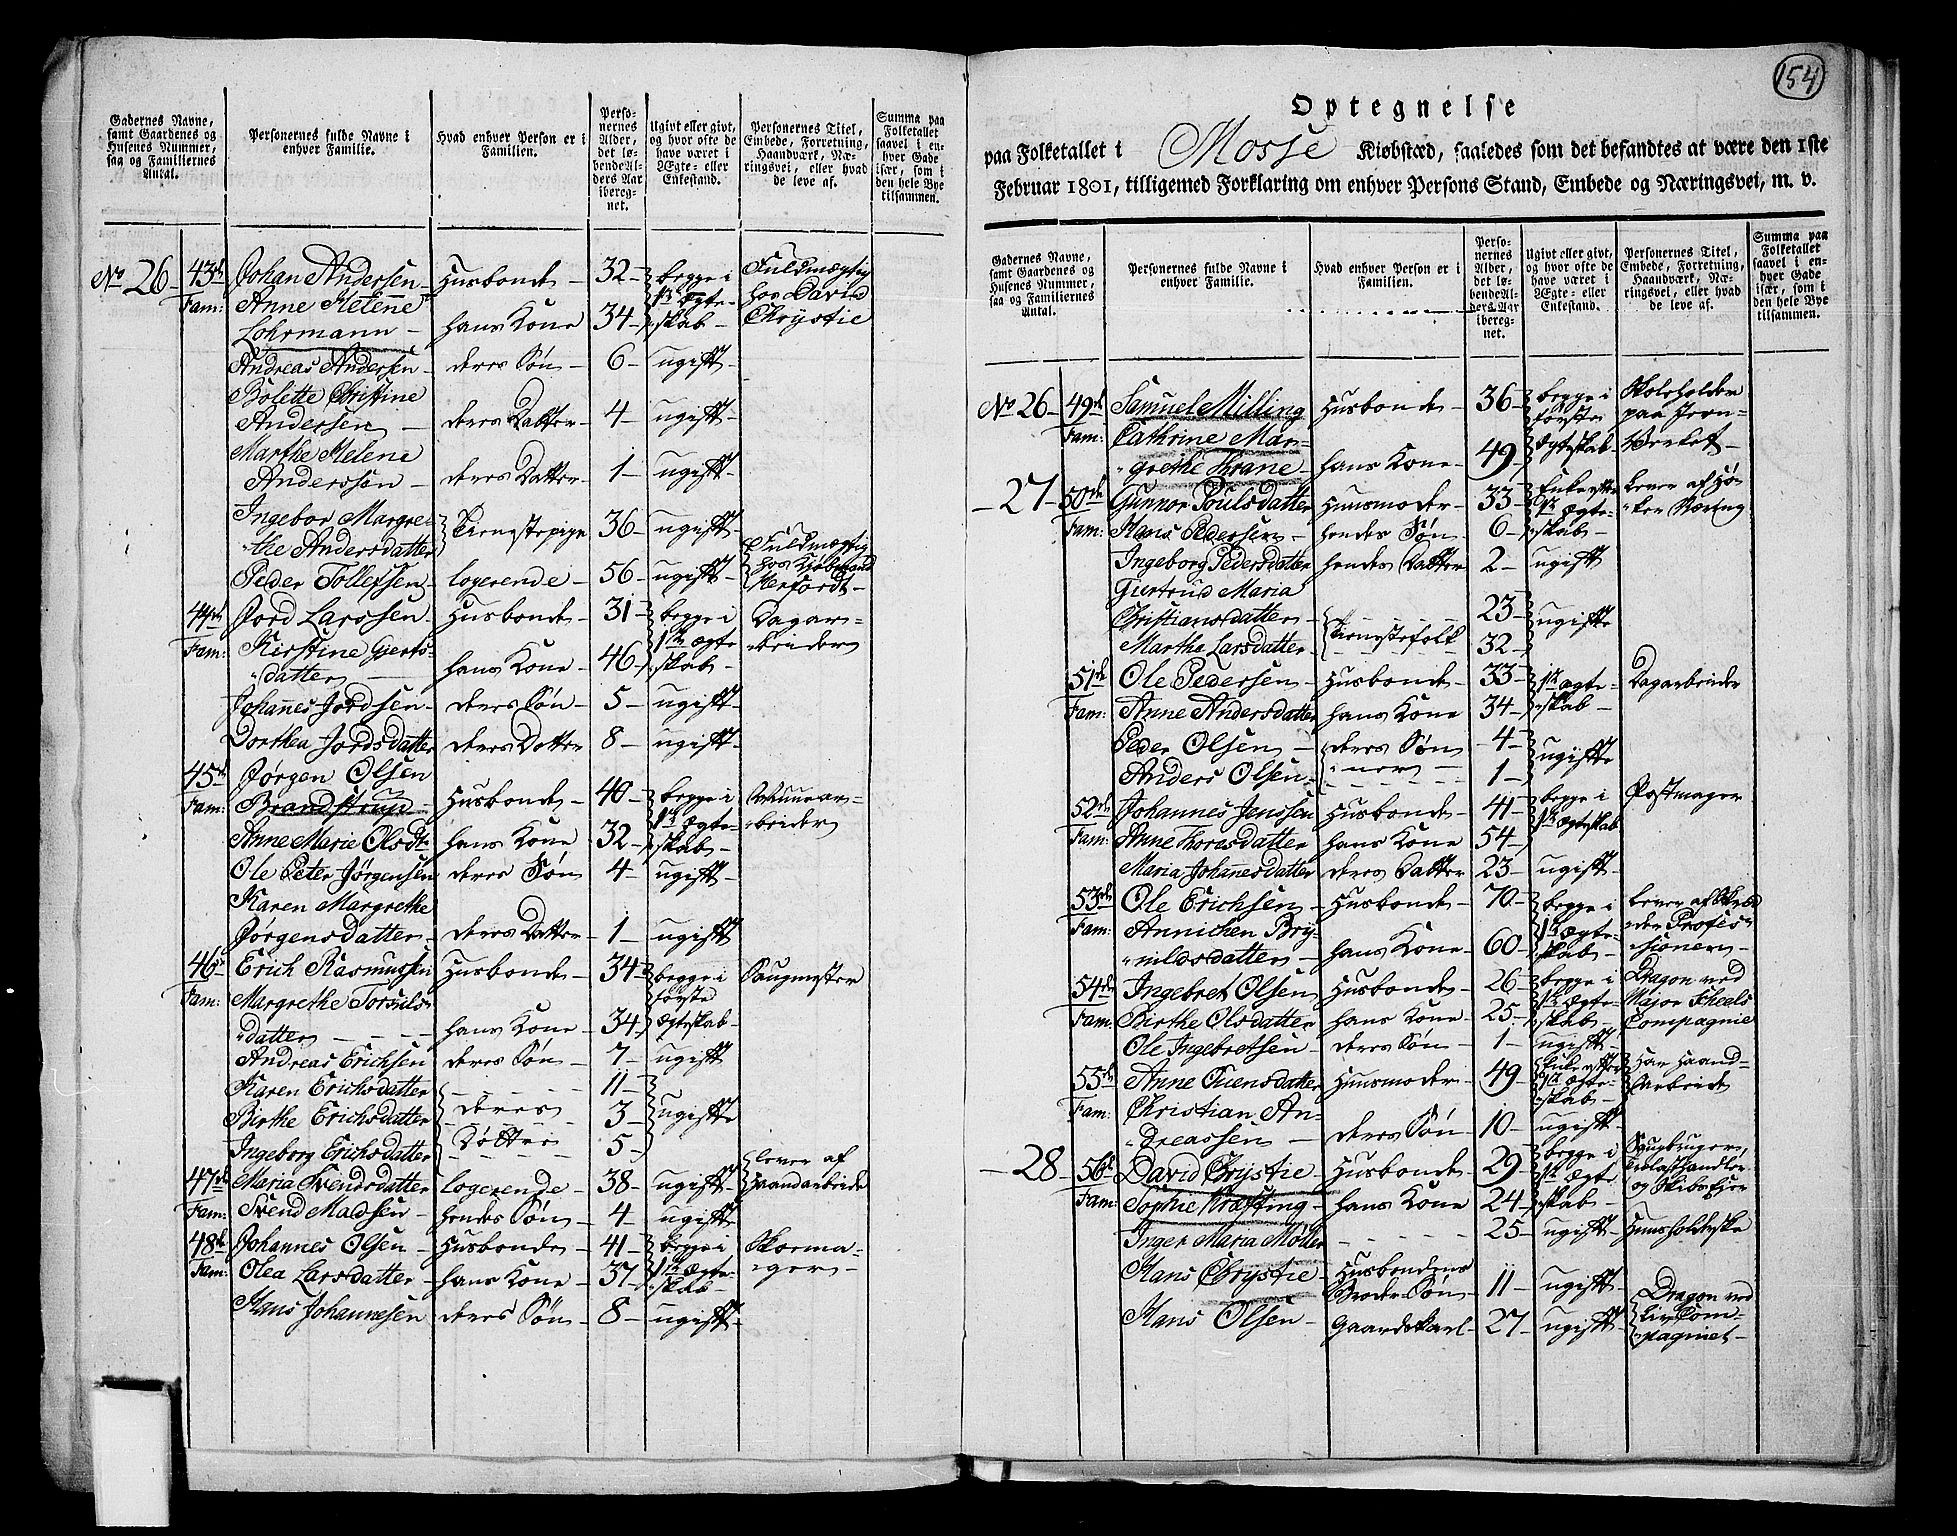 154
Gadernes Navne, samt Gaardenes og Husenes Nummer, saa og Familiernes Antal.
Personernes fulde Navne i enhver Familie.
Hvad enhver Person er i Familien.
Personernes Alder, det løbende Alders Aar iberegnet.
Ugivt eller givt, og hvor ofte de have været i Ægte- eller Enkestand.
Personernes Titel, Embede, Forretning, Haandværk, Næringsvei, eller hvad de leve af.
Summa paa Folketallet saavel i enhver Gade især, som i den hele Bye tilsammen.
No 26 - 43de Fam: Johan Andersen - Husbonde - 32 - begge i 1te Ægteskab - Fuldmægtig hos David Chrystie
Anne Helene Lohrmann - hans Kone 34 -
Andreas Andersen - deres Søn - 6 - ugift -
Bolette Christine Andersen - deres Datter - 4 - ugift -
Marthe Helene Anderssen - deres Datter - 1 - ugift -
Ingebor Margrethe Andersdatter Tienestepige 36 - ugift
Peder Tollefssen - logerende - 56 - ugift - Fuldmægtig hos Kiøbmand Herfordt -
44de Fam: Jord Larssen - Husbonde - 31 - begge i 1te Ægteskab - Dagarbeider
Kirstine Gjertsdatter - hans Kone - 46 -
Johannes Jordsen - deres Søn - 5 - ugift -
Dorthea Jordsdatter deres Datter 8 - ugift -
45de Fam: Jørgen Olsen Brandstrup - Husbonde - 40 - begge i 1te Ægteskab - Muurarbeider
Anne Marie Olsdtr hans Kone 32 -
Ole Peter Jørgensen deres Søn 4 - ugift -
Karen Margrethe Jørgensdatter - deres Datter - 1 - ugift
46de Fam: Erich Rasmussen Husbonde - 34 - begge i første Ægteskab - Saugmester
Margrethe datter - hans Kone - 34 -
Andreas Erichsen deres Søn - 7 - ugift
Karen Erichsdatter 11 - ugifte
Birthe Erichsdatter deres Døttre 3 -
Ingeborg Erichsdatter 5 -
47de Fam: Maria Svendsdatter logerende - 38 - ugift - lever af Haandarbeide
Svend Madsen - hendes Søn - 4 - ugift
48de Fam: Johannes Olsen - Husbonde - 41 - begge i 1te Ægteskab - Skomager -
Olea Larsdatter - hans Kone - 37 -
Hans Johannesen deres Søn - 8 - ugift -
Optegnelse
paa Folketallet i Mosse Kiøbstæd, saaledes som det befandtes at være den 1ste
Februar 1801, tilligemed Forklaring om enhver Persons Stand, Embede og Næringsvei, m. v.
Gadernes Navne, samt Gaardenes og Husenes Nummer, saa og Familiernes Antal.
Personernes fulde Navne i enhver Familie.
Hvad enhver Person er i Familien.
Personernes Alder, det løbende Alders Aar iberegnet.
Ugivt eller givt, og hvor ofte de have været i Ægte- eller Enkestand.
Personernes Titel, Embede, Forretning, Haandværk, Næringsvei, eller hvad de leve af.
Summa paa Folketallet saavel i enhver Gade især, som i den hele Bye tilsammen.
No 26 - 49de Fam: Samuel Milling Husbonde - 36 - begge i første Ægteskab - Skoleholder paa Jernverket -
Cathrine Margrethe Krane - hans Kone - 49 -
- 27 - 50de Fam: Gunnor Poulsdatter Huusmoder - 33 - Enke efter 1te Ægteskab - Lever af Høker Næring
Hans Pedersen - hendes Søn 6 -
Ingeborg Pedersdatter hendes Datter 2 - ugift
Giertrud Maria Christiansdatter - Tienestefolk 23 - ugifte
Marthe Larsdatter 32 -
51de Fam: Ole Pedersen - Husbonde - 33 - 1te Ægteskab - Dagarbeider
Anne Andersdatter hans Kone 34 -
Peder Olsen - deres Sønner 4 - ugifte
Anders Olsen 1 -
52de Fam: Johannes Jenssen Husbonde - 41 - begge i 1te Ægteskab Postmager
Anne Thoresdatter hans Kone 54 -
Maria Johannesdatter deres Datter 23 - ugift -
53de Fam: Ole Erichsen - Husbonde - 70 - begge i 1te Ægteskab - Lever af Skrædder Profesionen -
Annichen Brynildsdatter - hans Kone - 60 -
54de Fam: Ingebret Olsen Husbonde - 26 - begge i 1te Ægteskab - Dragon ved Major Scheels Compagnie
Birthe Olsdatter hans Kone - 25 -
Ole Ingebretsen - deres Søn - 1 - ugift -
55de Fam: Anne Svensdatter Huusmoder - 49 - Enke efter 1te Ægteskab - Har Haandarbeide
Christian Andreassen - deres Søn 10 - ugift -
- 28 - 56de Fam: David Chrystie - Husbonde 29 - begge i 1te Ægteskab - Saugbruger, Trelasthandler og Skibsejer
Sophie Kræfting - hans Kone 24 -
Inger Maria Møller 25 - ugift - Huusholderske
Hans Chrystie - Husbondens Broder Søn - 11 - ugift -
Hans Olsen - Gaardskarl - 27 - ugift - Dragon ved Liv Compagniet -